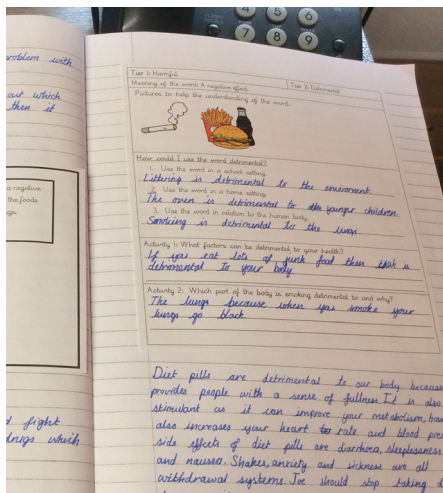 4 5 6
7 8 9
problem with
out which
then it
a negative
the foods
Tier 1: Harmful
Tier 2: Detrimental
Meaning of the word: A negative effect.
Pictures to help the understanding of the word.
How would I use the word detrimental?
1. Use the word in a school setting.
Littering is detrimental to the enviroment
2. Use the word in a home setting.
The oven is detrimental to younger children.
3. Use the word in relation to the human body.
Smoking is detrimental to the lungs.
Activity 1: What factors can be detrimental to your health?
If you eat lots of junk food then that is
detromental to your body
Activity 2: Which part of the body is smoking detrimental to and why?
The lungs because when you smoke your
lungs go black
Diet pills are detrimental to our body because
provides people with a sense of fullness. It is also
stimulant as it can improve your metabolism, how
also increases your heart rate and blood pre
side effects of diet pills are diarrhoea, sleeplessness
and nausea. Shakes, anxiety and sickness are all
withdrawal systems. Joe should stop taking d
fight
drugs which